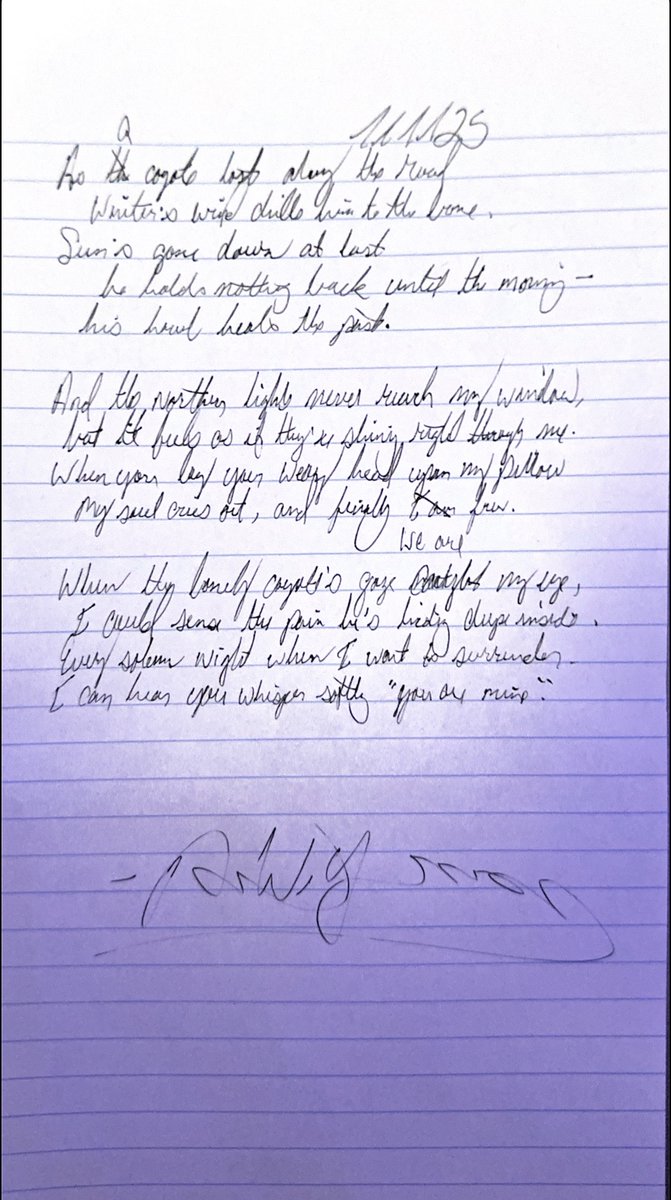 11.11.25
As a coyote lopes along the road
Winter's wire drills him to the bone.
Sun's gone down at last
he holds nothing back until the morning —
his howl heals the past.
And the northern lights never reach my window,
but it feels as if they're shining right through me.
When you lay your weary head upon my pillow
my soul cries out, and finally we are free.
When the lonely coyote's gaze my eye,
I could sense the pain he's hiding deep inside.
Every solemn night when I want to surrender
I can hear you whisper softly "you are mine".